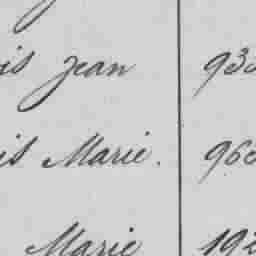 is Jean 930
is Marie. 960
Marie 192